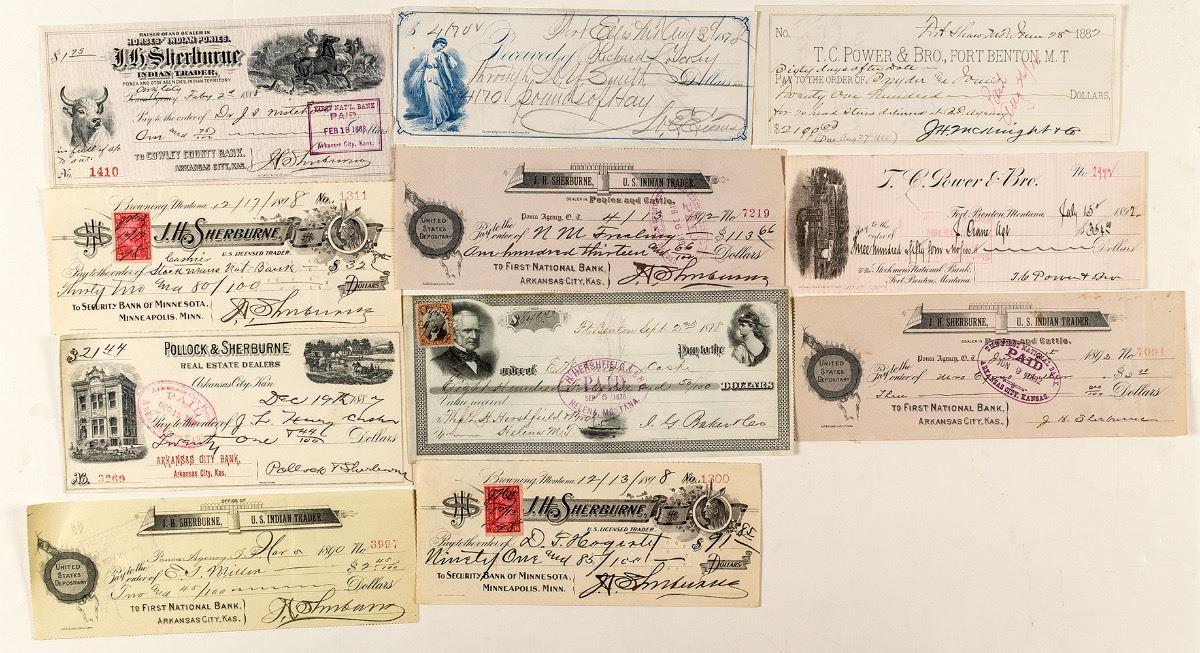 RAISER OF AND DEALER IN
HORSES INDIAN PONIES.
$1.75
J.H. Sherburne
INDIAN TRADER,
PONCA AND OTOE AGENCIES, INDIAN TERRITORY.
Ark City
Feby 2d 1888
Pay to the order of Dr J S
One and 75/100 Dollars
in full of
TO COWLEY COUNTY BANK.
ARKANSAS CITY, KAS.
JH Sherburne
No. 1410
FIRST NAT'L. BANK
PAID.
FEB 18 1888
Arkansas City, Kas.
$ 4170
Fort Ellis Aug 3d 1878
Received of Richard
through Smith
4170 pounds of Hay
No.
Fort Shaw 28 1882
T. C. POWER & BRO., FORT BENTON, M. T.
Eighty days after Date
PAY TO THE ORDER OF
Twenty One Hundred DOLLARS,
for 70 head
$2100
Paid
J H McKnight & Co
Browning, Montana, 12/17/1898 No. 1311
J.H. SHERBURNE,
U.S. LICENSED TRADER.
Cashier
Pay to the order of Stockmans Nat. Bank $32
Thirty Two and 80/100 DOLLARS
TO SECURITY BANK OF MINNESOTA,
MINNEAPOLIS, MINN.
JH Sherburne
J. H. SHERBURNE, U. S. INDIAN TRADER.
DEALER IN Ponies and Cattle.
UNITED STATES Depositary
Ponca Agency, O. T. 4/13 1892 No 7219
Pay to the order of N M $113 66
One hundred thirteen and 66/100
TO FIRST NATIONAL BANK,
ARKANSAS CITY, KAS.
JH Sherburne
T. C. Power & Bro. No 2972
Fort Benton, Montana, July 15th
Pay to the order of J. Crane Agt
Three hundred & fifty four Dollars
To the Stockmens National Bank,
Fort Benton, Montana.
T. C. Power & Bro
$21 44
POLLOCK & SHERBURNE
REAL ESTATE DEALERS
Arkansas City, Kan
Dec 19th 1887
Pay to the order of J L Henry
Twenty One & 44/100 Dollars
ARKANSAS CITY BANK,
Arkansas City, Kas.
No. 3269
Pollock & Sherburne
Ft. Benton Sept. 2nd 1878
Pay to the
order of
Eight Hundred and 50/100 DOLLARS
Value received
HERSHFIELD & BRO
PAID
SEP 5 1878
HELENA, MONTANA
Helena M.T.
I. G. Baker & Co
J. H. SHERBURNE, U. S. INDIAN TRADER.
DEALER IN Ponies and Cattle.
UNITED STATES Depositary
Ponca Agency, O. T. 1892 No 7091
Pay to the order of
Three Dollars
PAID
JUN 9
ARKANSAS CITY, KANSAS.
TO FIRST NATIONAL BANK,
ARKANSAS CITY, KAS.
J. H. Sherburne
OFFICE OF
J. H. SHERBURNE, U. S. INDIAN TRADER.
UNITED STATES Depositary
Ponca Agency, 1890 No 3997
Pay to the order of E. S. Miller $2 45/100
Two and 45/100 Dollars
TO FIRST NATIONAL BANK,
ARKANSAS CITY, KAS.
JH Sherburne
Browning, Montana, 12/13/1898 No. 1300
J.H. SHERBURNE,
U.S. LICENSED TRADER.
Pay to the order of D. F. Hogerty $91 85
Ninety One and 85/100 DOLLARS
TO SECURITY BANK OF MINNESOTA,
MINNEAPOLIS, MINN.
JH Sherburne